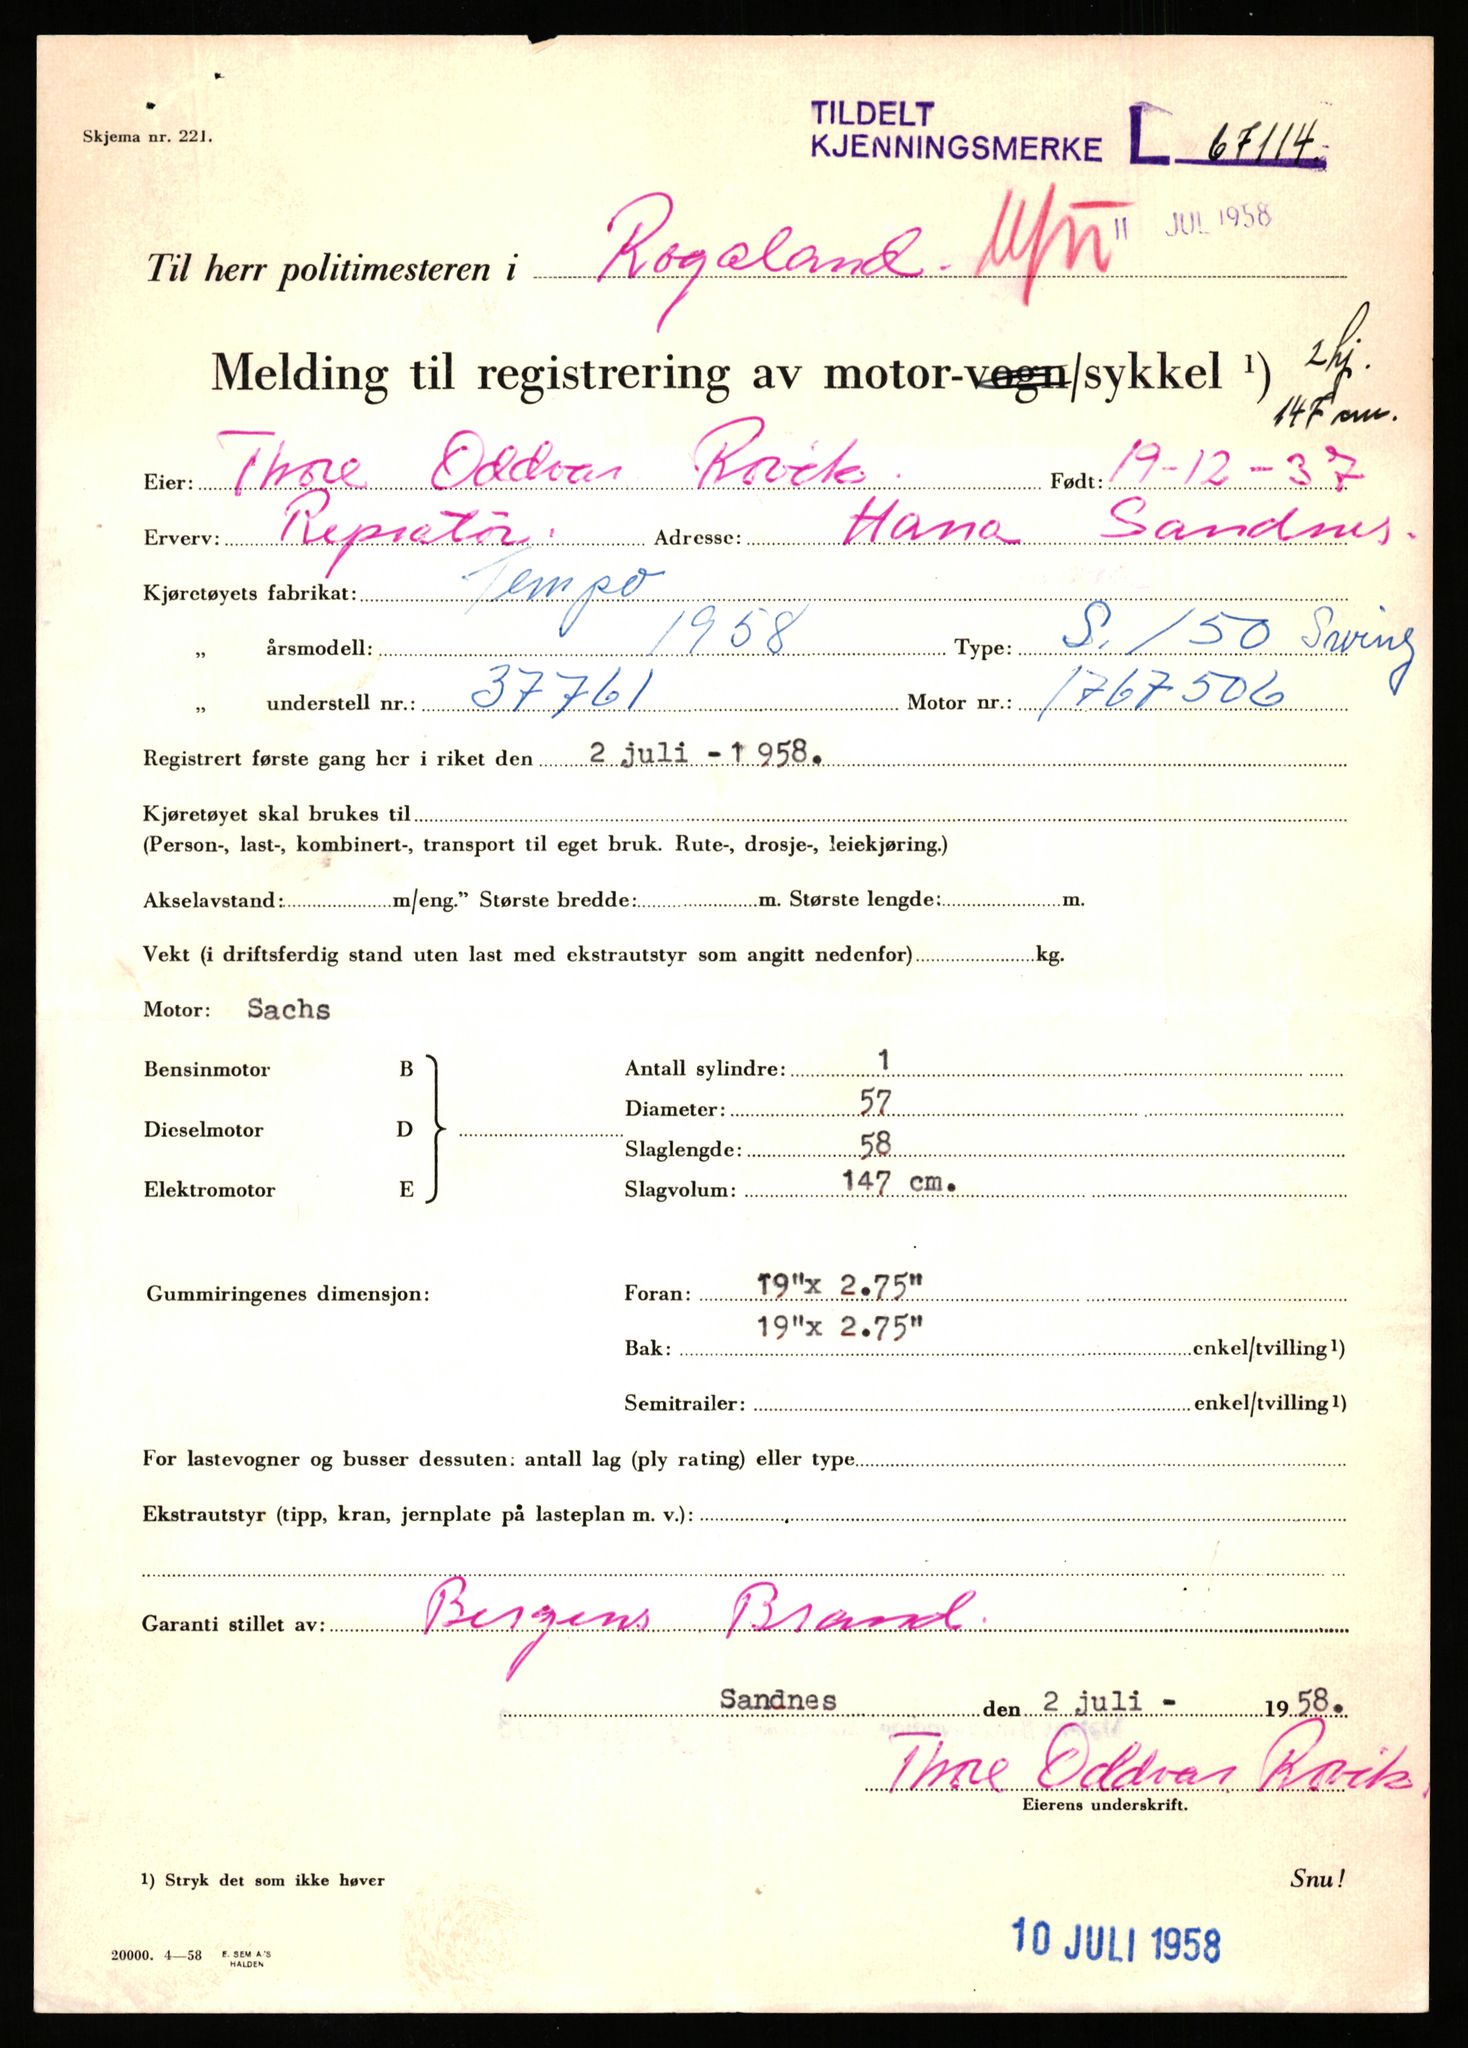 Skjema nr. 221.
TILDELT
KJENNINGSMERKE L 67114.
11 JUL 1958
Til herr politimesteren i Rogaland.
Melding til registrering av motor-vogn/sykkel 1)
2 hj.
147 cm.
Eier: Thore Oddvar Rovik. Født: 19-12-37
Erverv: Repratør. Adresse: Hana Sandnes.
Kjøretøyets fabrikat: Tempo
„ årsmodell: 1958 Type: S. 150 Swing
„ understell nr.: 37761 Motor nr.: 1767506
Registrert første gang her i riket den 2 juli - 1958.
Kjøretøyet skal brukes til
(Person-, last-, kombinert-, transport til eget bruk. Rute-, drosje-, leiekjøring.)
Akselavstand: m/eng.” Største bredde: m. Største lengde: m.
Vekt (i driftsferdig stand uten last med ekstrautstyr som angitt nedenfor) kg.
Motor: Sachs
Bensinmotor B Antall sylindre: 1
Diameter: 57
Dieselmotor D
Slaglengde: 58
Elektromotor E Slagvolum: 147 cm.
Gummiringenes dimensjon: Foran: 19"x 2.75"
19"x 2.75"
Bak: enkel/tvilling 1)
Semitrailer: enkel/tvilling 1)
For lastevogner og busser dessuten: antall lag (ply rating) eller type
Ekstrautstyr (tipp, kran, jernplate på lasteplan m. v.):
Garanti stillet av: Bergens Brand.
Sandnes den 2 juli - 1958.
Thore Oddvar Rovik.
Eierens underskrift.
1) Stryk det som ikke høver
Snu!
20000. 4—58 E. SEM A.'S
HALDEN
10 JULI 1958